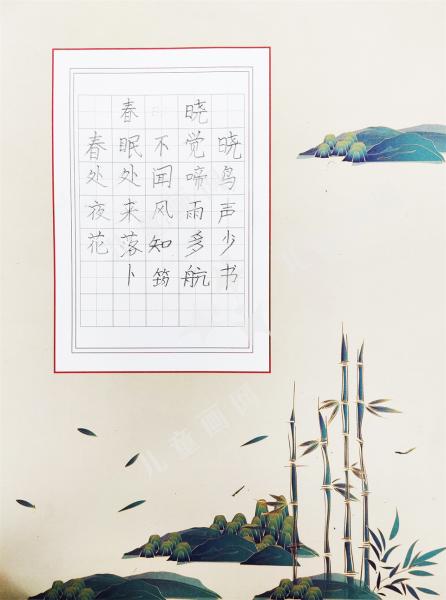 春晓
春眠不觉晓
处处闻啼鸟
夜来风雨声
花落知多少
卜筠航书
儿童画网